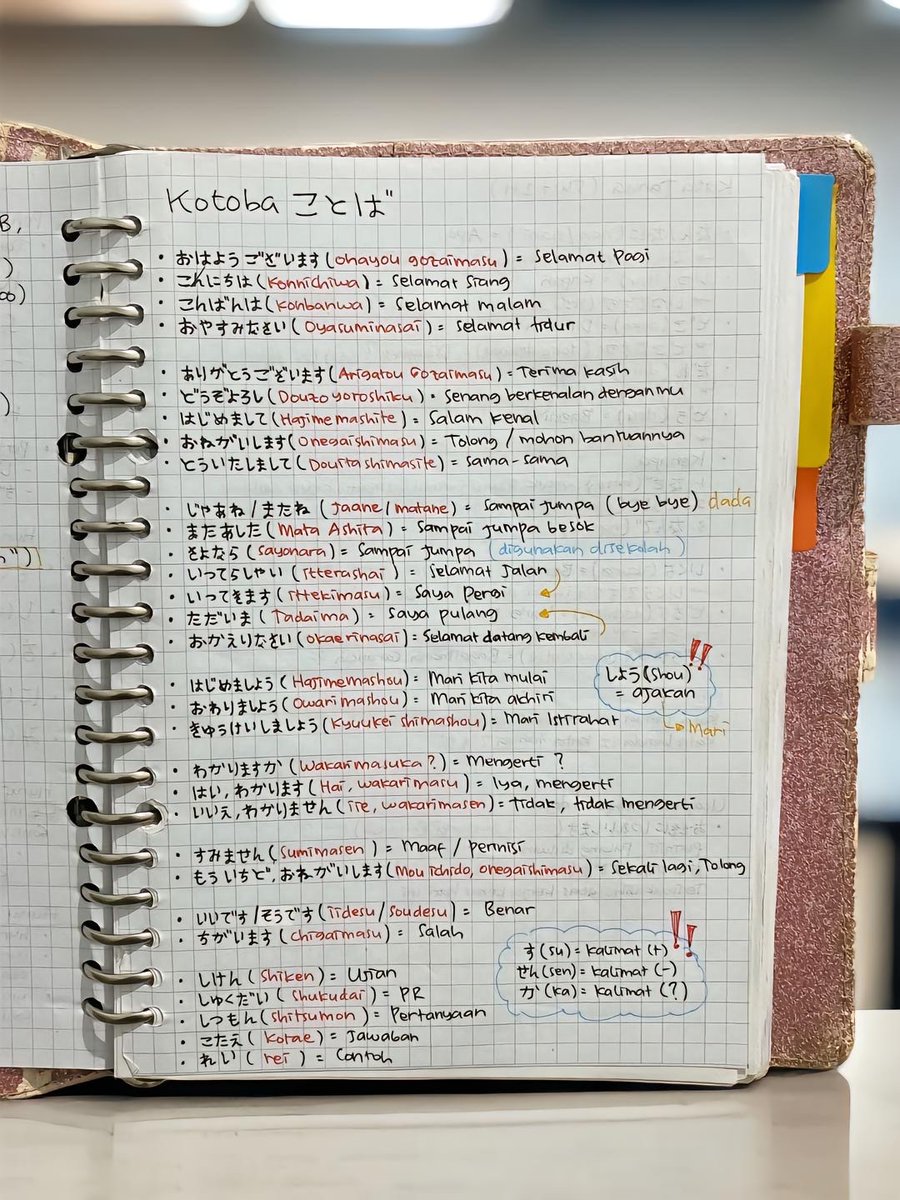 B,
)
∞)
)
ก")
Kotoba ことば
・おはようございます(ohayou gozaimasu) = Selamat Pagi
・こんにちは(Konnichiwa) = Selamat Siang
・こんばんは(Konbanwa) = Selamat malam
・おやすみなさい(Oyasuminasai) = Selamat tidur
・ありがとうございます(Arigatou Gozaimasu) = Terima kasih
・どうぞよろし(Douzo yoroshiku) · Senang berkenalan denganmu
・はじめまして(Hajimemashite) = Salam kenal
・おねがいします(Onegaishimasu) = Tolong / mohon bantuannya
・とういたしまして(Douita shimasite) = sama-sama
・じゃあね/またね (Jaane/matane) = Sampai jumpa (bye bye) dada
・またあした(Mata Ashita) = Sampai jumpa besok
・さよなら(sayonara) = Sampai jumpa (digunakan disekolah)
・いってらしゃい(itterashai) = Selamat Jalan
・いってきます(ittekimasu) = Saya Pergi
・ただいま(Tadaima) = Saya pulang
・おかえりなさい(okaerinasai) = Selamat datang kembali
・はじめましよう(Hajimemashou) = Mari kita mulai
・おわりましよう(Owarimashou) = Mari kita akhiri
・きゅうけいしましよう(Kyuukei shimashou) = Mari Istirahat
しよう(Shou)
= ajakan
Mari
・わかりますか(Wakarimasuka?) = Mengerti ?
・はい,わかります(Hai, wakarimasu) = Iya, mengerti
・いいえ,わかりません(iie, wakarimasen) = tidak, tidak mengerti
・すみません(Sumimasen) = Maaf / permisi
・もういちど,おねがいします(Mou ichido, onegaishimasu) = Sekali lagi, Tolong
・いいです/そうです(iidesu/soudesu) = Benar
・ちがいます(chigaimasu) = Salah
す(su) = kalimat (+)
せん(sen) = kalimat (-)
か(ka) = kalimat (?)
・しけん(Shiken) = Ujian
・しゅくだい(Shukudai) = PR
・しつもん(shitsumon) = Pertanyaan
・こたえ(kotae) = Jawaban
・れい(rei) = Contoh